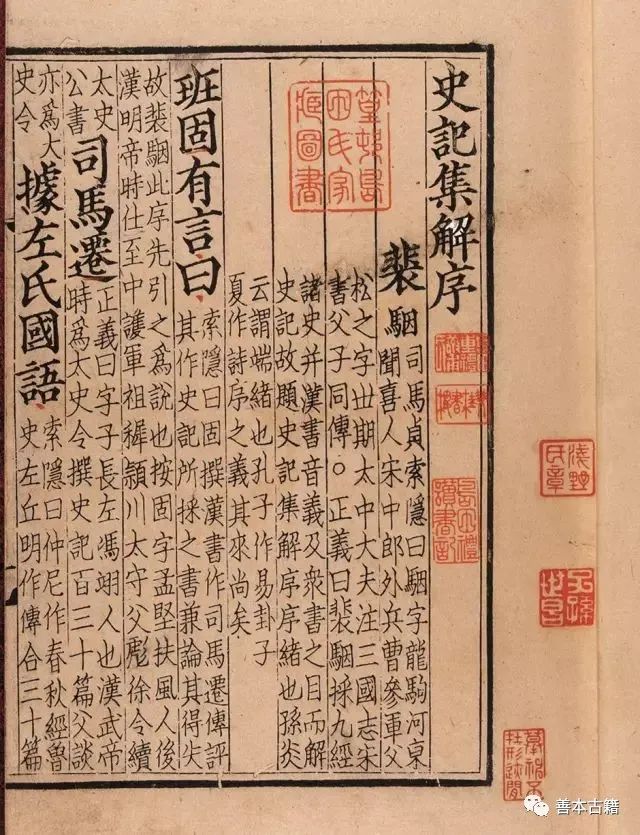 史記集解序
裴駰
司馬貞索隱曰駰字龍駒河東
聞喜人宋中郎外兵曹參軍父
松之字丗期太中大夫注三國志宋
書父子同傳○正義曰裴駰採九經
諸史并漢書音義及衆書之目而解
史記故題史記集解序序緒也孫炎
云謂端緒也孔子作易卦子
夏作詩序之義其來尚矣
班固有言曰
索隱曰固撰漢書作司馬遷傳評
其作史記所採之書兼論其得失
故裴駰此序先引之爲說也按固字孟堅扶風人後
漢明帝時仕至中護軍祖稺潁川太守父彪徐令續
太史
公書
司馬遷
正義曰字子長左馮翊人也漢武帝
時爲太史令撰史記百三十篇父談
亦爲太
史令
據左氏國語
索隱曰仲尼作春秋經魯
史左丘明作傳合三十篇
篁邨島
田氏家
藏圖書
淺野
氏章
善本古籍